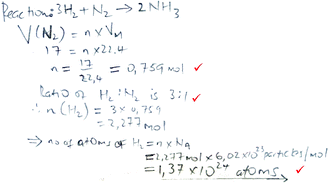 Reaction: 3H₂ + N₂ → 2NH₃
V(N₂) = n × Vₘ
17 = n × 22.4
n = 17/22,4 = 0,759 mol ✓
Ratio of H₂:N₂ is 3:1 ✓
∴ n(H₂) = 3 × 0,759
= 2,277 mol
⇒ no of atoms of H₂ = n × N_A
= 2,277 mol × 6,02 × 10²³ particles/mol
= 1,37 × 10²⁴ atoms ✓